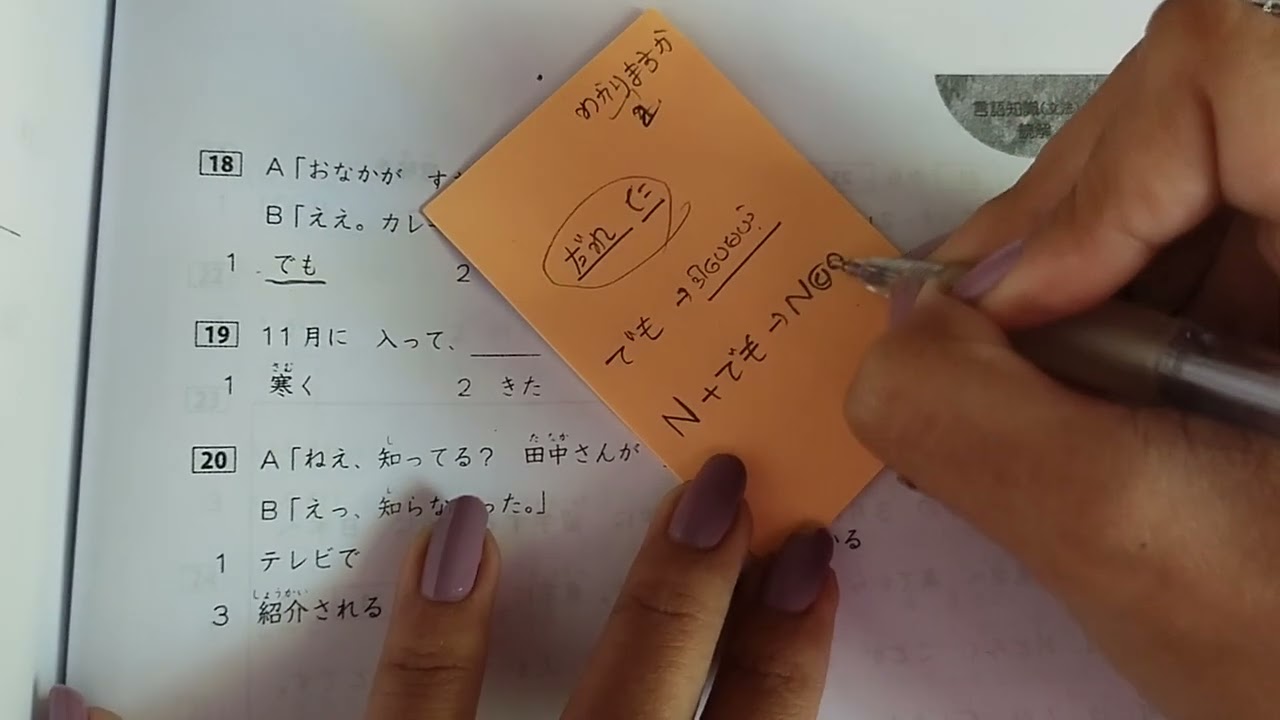 言語知識(文法)
読解
18 A「おなかが す
B「ええ。カレー
1 でも 2
19 11月に 入って、
さむ
1 寒く 2 きた
し たなか
20 A「ねえ、知ってる? 田中さんが
し
B「えっ、知らな った。」
1 テレビで
しょうかい
3 紹介される
いる
わかりますか
だれ に
でも →
N+でも → N